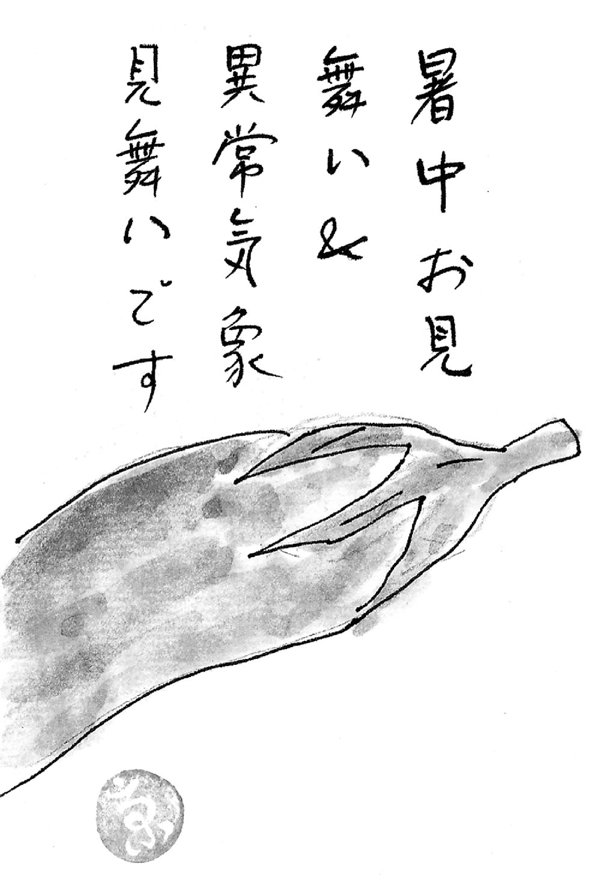 暑中お見
舞い&
異常気象
見舞いです